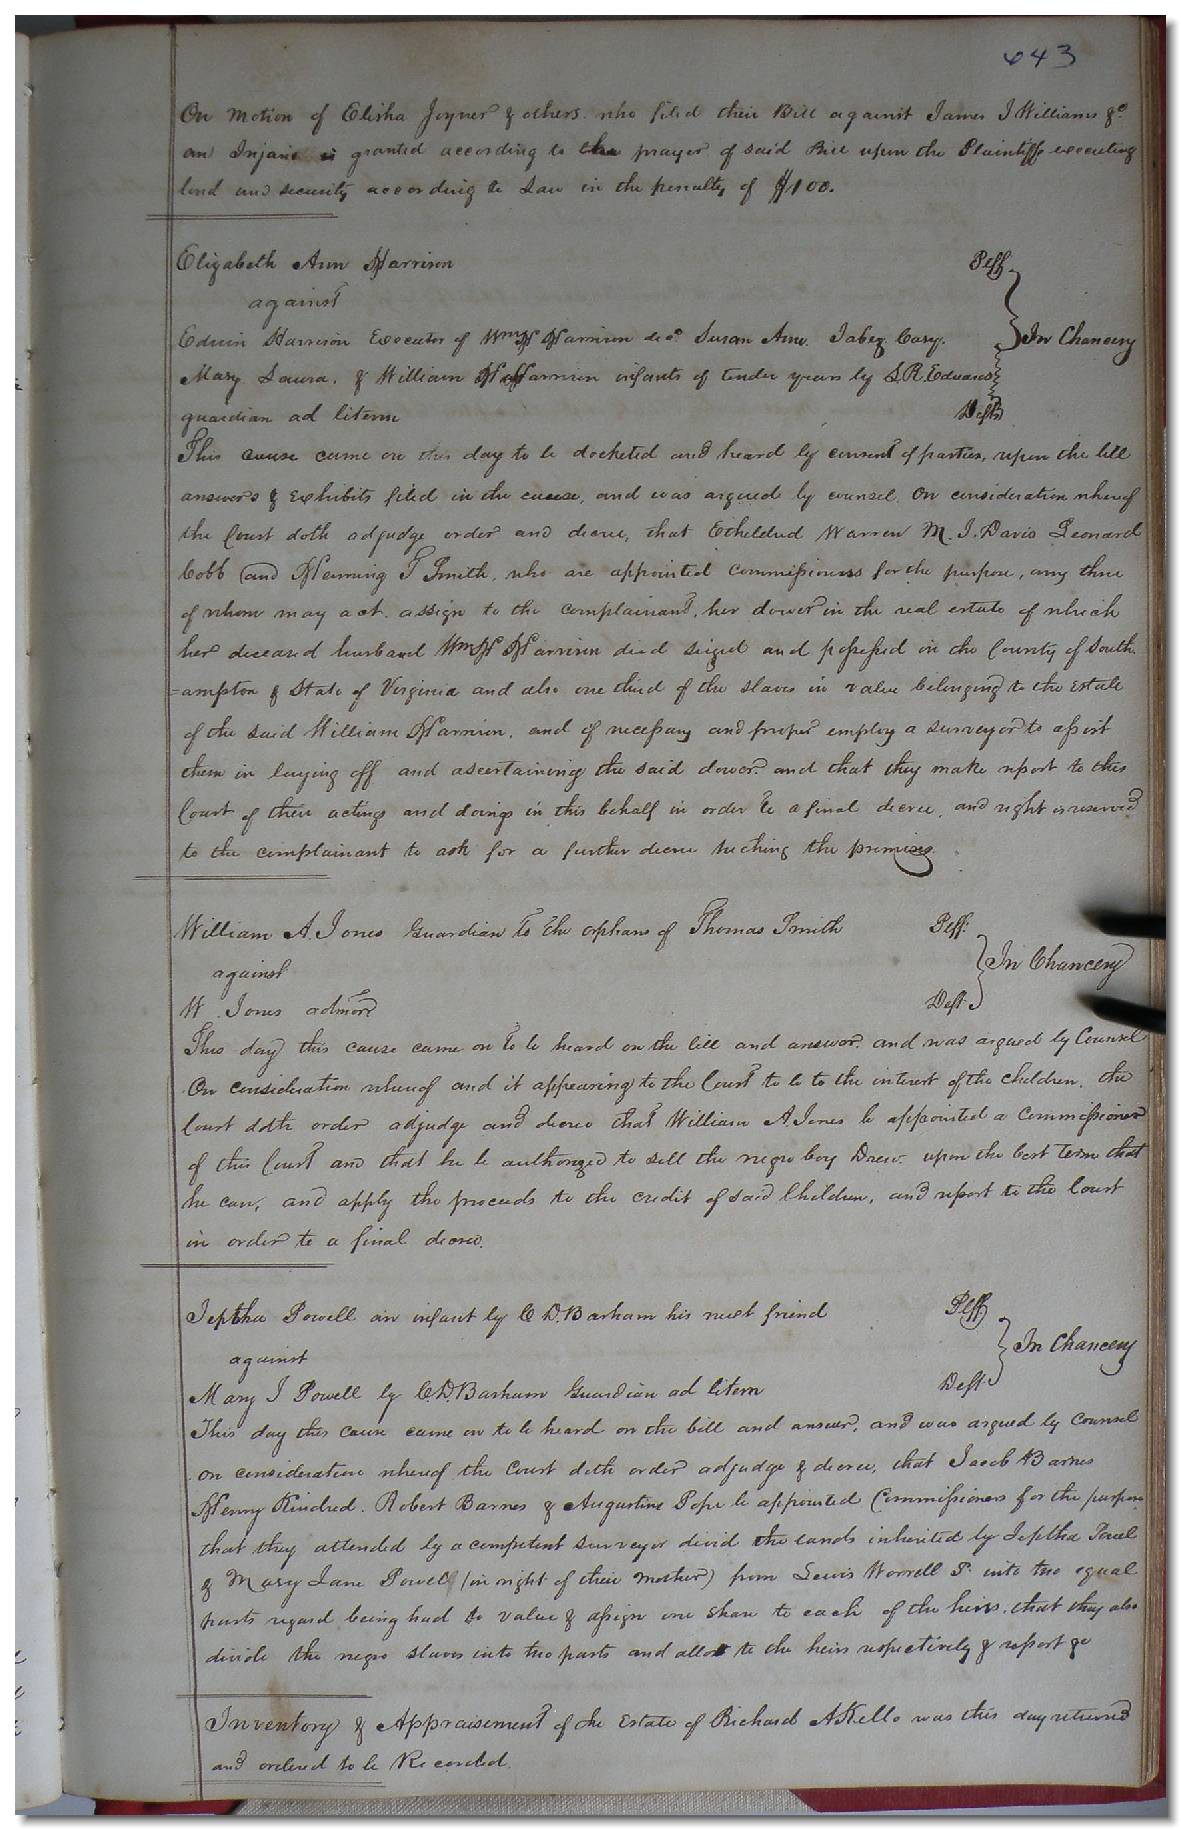 643
On Motion of Elisha Joyner & others who filed their Bill against James J Williams &c
an Injunc is granted according to the prayer of said Bill upon the Plaintiffs executing
bond and security according to Law in the penalty of $100.
Elizabeth Ann Harrison Plff
against
Edwin Harrison Executor of Wm H Harrison decd Susan Ann. Jabez Cary. In Chancery
Mary Laura. & William H Harrison infants of tender years by L.R. Edwards
guardian ad litem Defts
This cause came on this day to be docketed and heard by consent of parties, upon the bill
answers & Exhibits filed in the cause, and was argued by counsel. On consideration whereof
the Court doth adjudge order and decree, that Etheldred Warren M. J. Davis Leonard
Cobb and Henning T Smith, who are appointed commissioners for the purpose, any three
of whom may act. assign to the complainant, her dower in the real estate of which
her deceased husband Wm H Harrison died seized and possessed in the County of South
=ampton & State of Virginia and also one third of the slaves in value belonging to the Estate
of the said William Harrison. and if necessary and proper employ a surveyor to assist
them in laying off and ascertaining the said dower. and that they make report to this
Court of their actings and doings in this behalf in order to a final decree, and right is reserved
to the complainant to ask for a further decree touching the premises.
William A. Jones Guardian to the orphans of Thomas Smith Plff.
against In Chancery
W. Jones admor Deft
This day this cause came on to be heard on the bill and answer. and was argued by Counsel
On consideration whereof and it appearing to the Court to be to the interest of the children. the
Court doth order adjudge and decree that William A. Jones be appointed a Commissioner
of this Court and that he be authorized to sell the negro boy Drew. upon the best Term that
he can, and apply the proceeds to the credit of said Children, and report to the Court
in order to a final decree.
Jeptha Powell an infant by C D. Barham his next friend Plff
against In Chancery
Mary J Powell by C.D. Barham Guardian ad litem Deft
This day this cause came on to be heard on the bill and answer, and was argued by Counsel
on consideration whereof the Court doth order adjudge & decree, that Jacob Barnes
Henry Kindred. Robert Barnes & Augustine Pope be appointed Commissioners for the purpose
that they attended by a competent surveyor divid the lands inherited by Jeptha Powel
& Mary Jane Powell (in right of their Mother) from Lewis Worrell Sr. into two equal
parts regard being had to value & assign one share to each of the heirs. that they also
divide the negro slaves into two parts and allot to the heirs respectively & report &c
Inventory & Appraisement of the Estate of Richard A Kello was this day returned
and ordered to be Recorded.